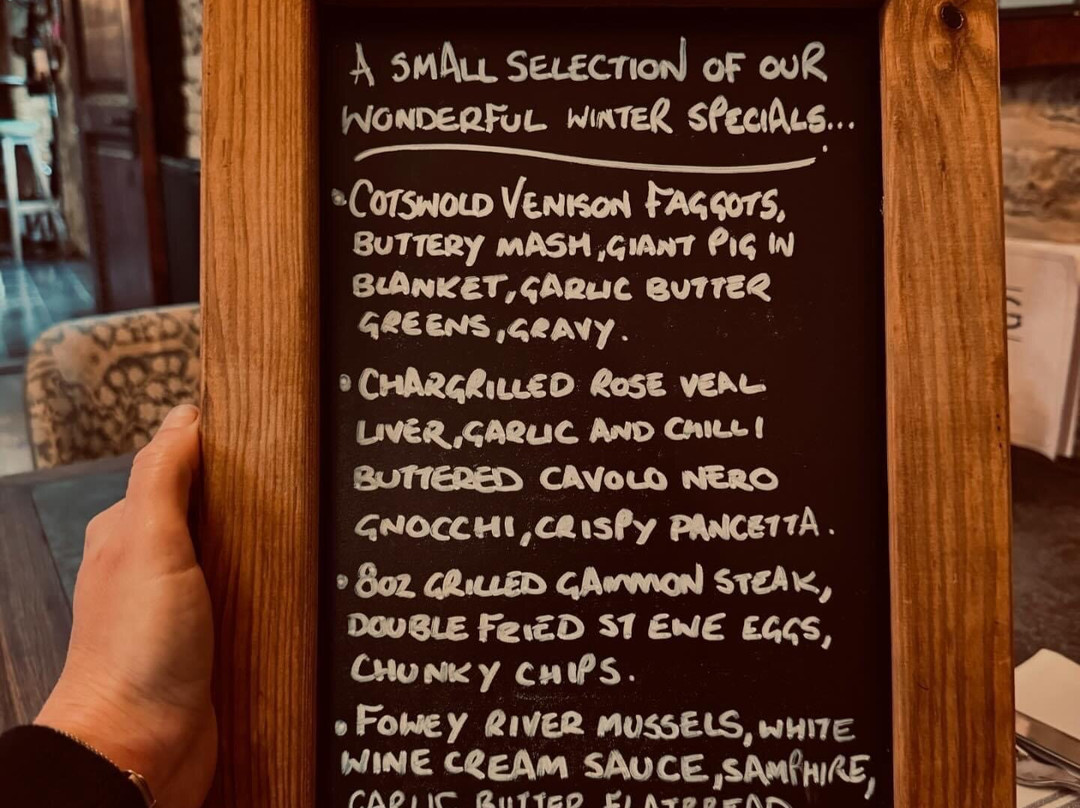 A SMALL SELECTION OF OUR
WONDERFUL WINTER SPECIALS...
• COTSWOLD VENISON FAGGOTS,
BUTTERY MASH, GIANT PIG IN
BLANKET, GARLIC BUTTER
GREENS, GRAVY.
• CHARGRILLED ROSE VEAL
LIVER, GARLIC AND CHILLI
BUTTERED CAVOLO NERO
GNOCCHI, CRISPY PANCETTA.
• 8oz GRILLED GAMMON STEAK,
DOUBLE FRIED ST EWE EGGS,
CHUNKY CHIPS.
• FOWEY RIVER MUSSELS, WHITE
WINE CREAM SAUCE, SAMPHIRE,
GARLIC BUTTER FLATBREAD
G